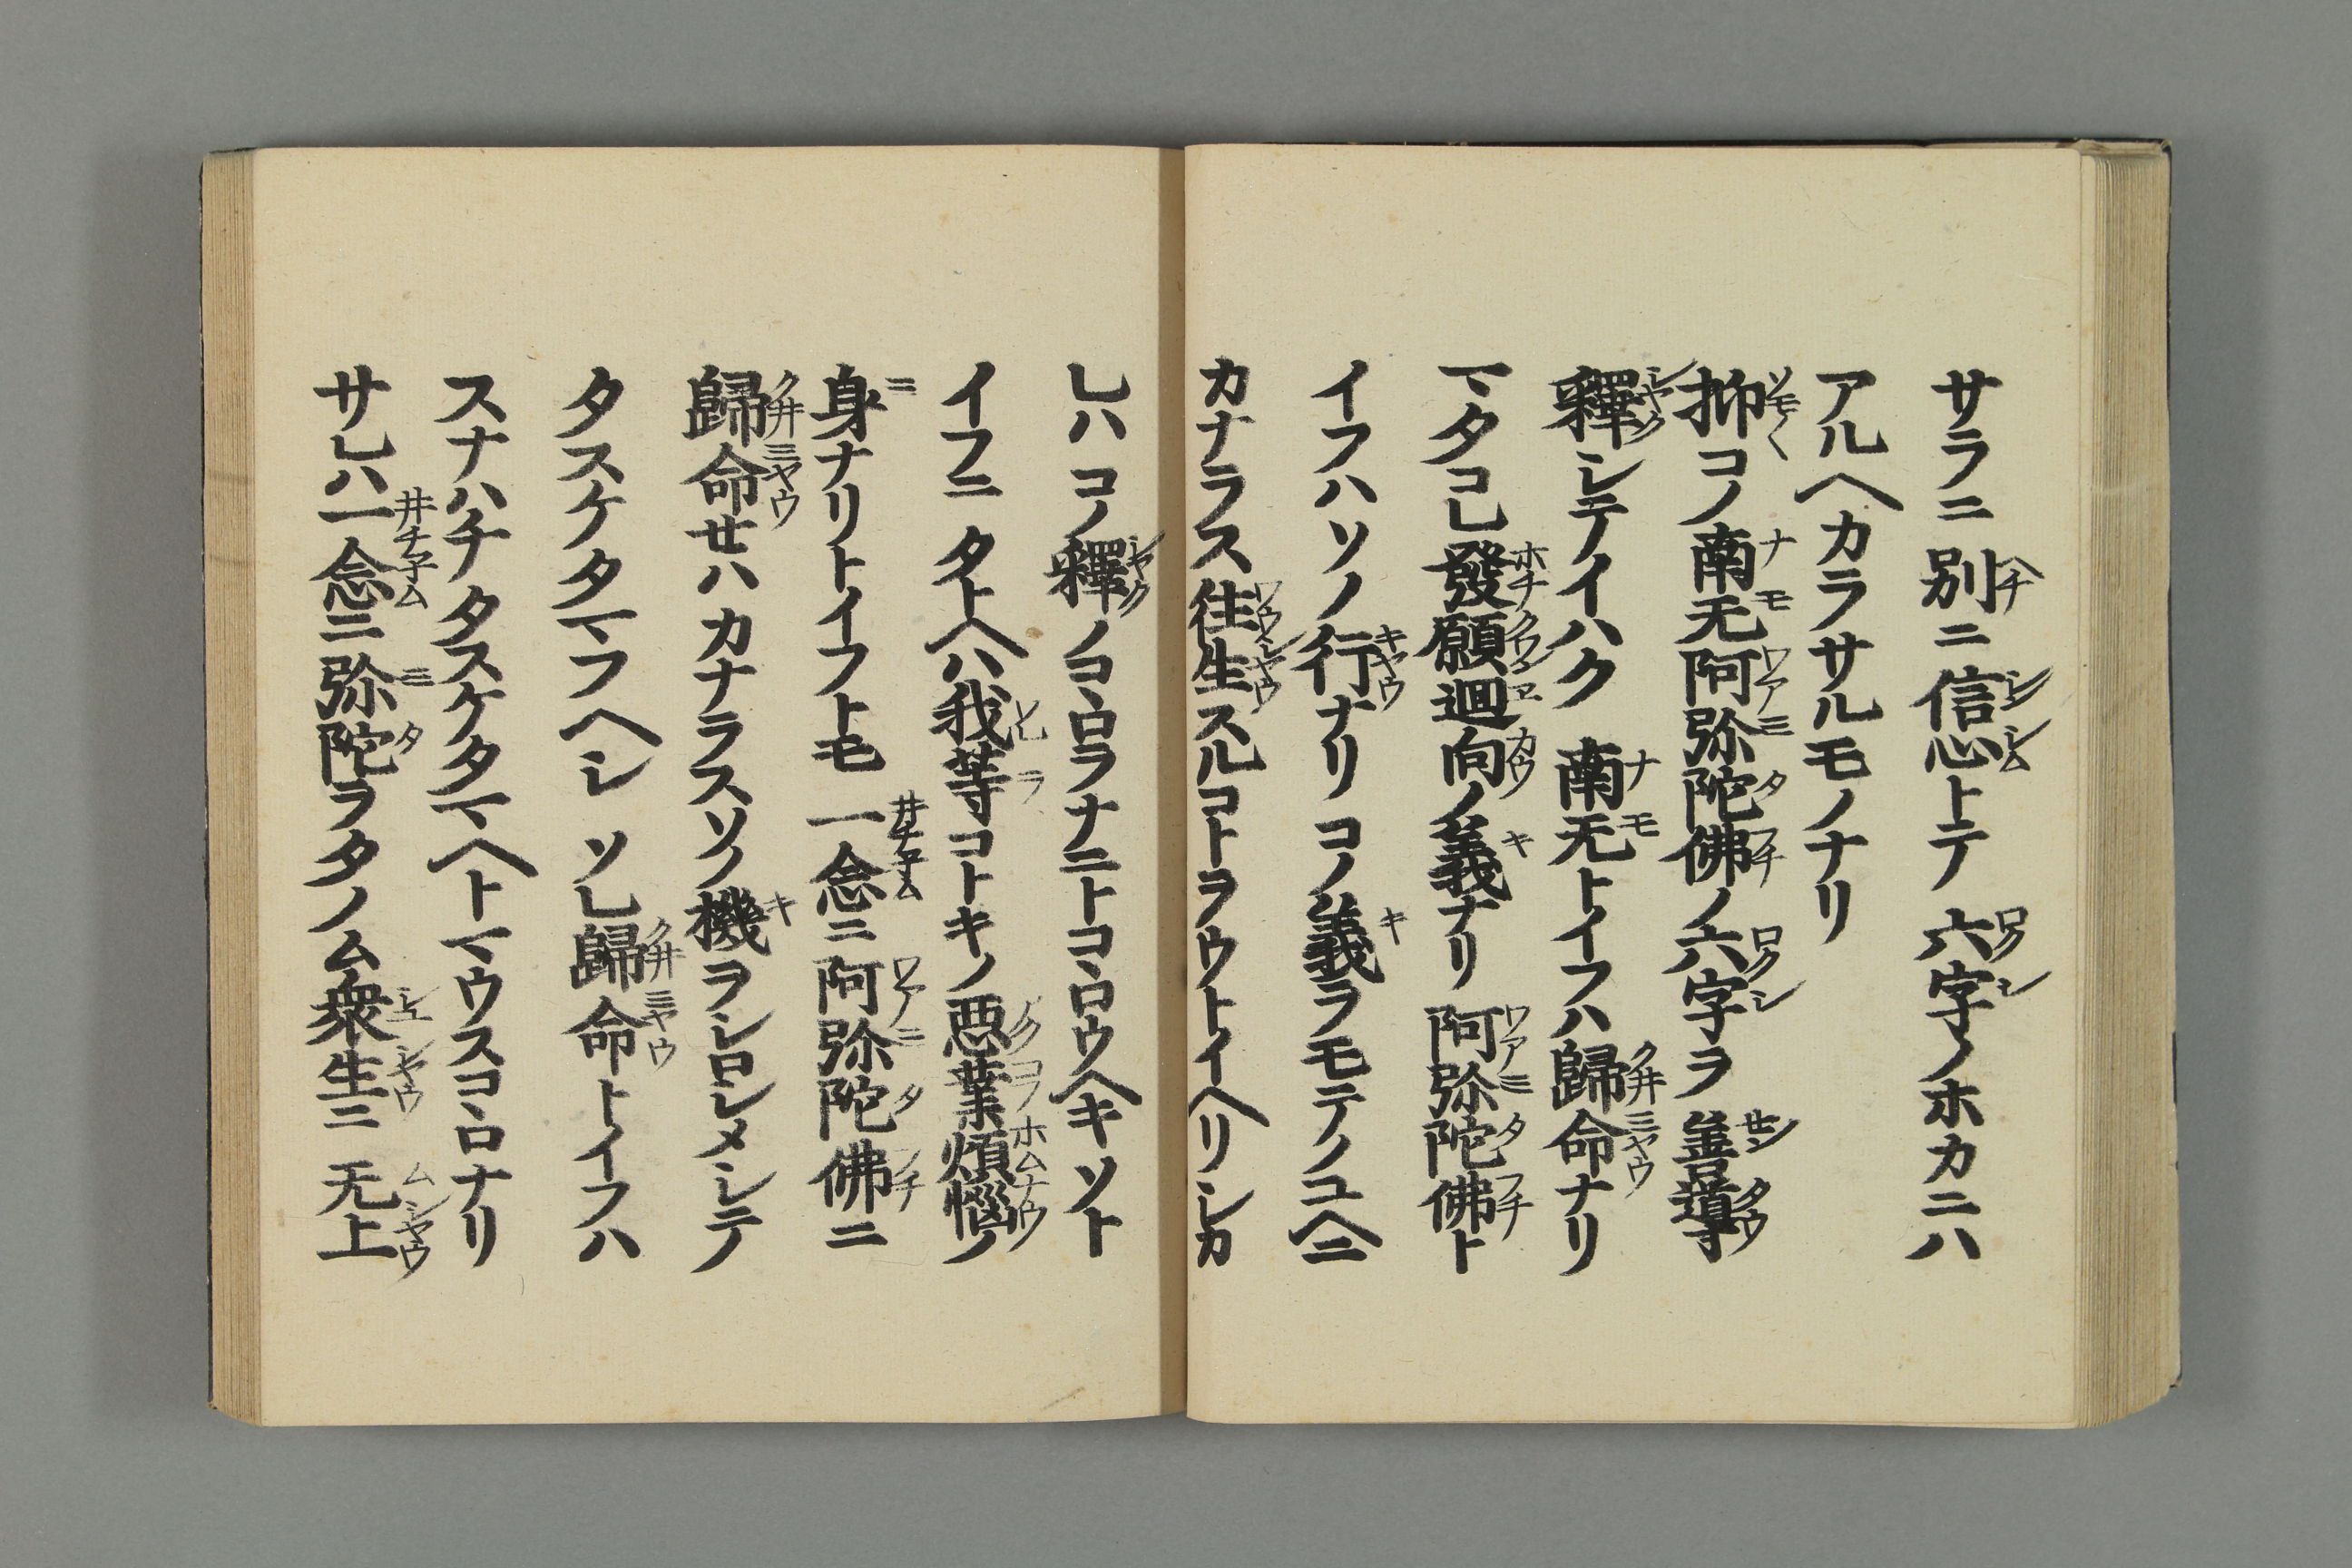 サラニ別ニ信心トテ六字ノホカニハ
アルヘカラサルモノナリ
抑コノ南无阿弥陀佛ノ六字ヲ善導
釋シテイハク南无トイフハ歸命ナリ
マタコレ發願廻向ノ義ナリ阿弥陀佛ト
イフハソノ行ナリコノ義ヲモテノユヘニ
カナラス往生スルコトヲウトイヘリシカ
レハコノ釋ノコヽロヲナニトコヽロウヘキソト
イフニタトヘハ我等コトキノ悪業煩惱ノ
身ナリトイフトモ一念ニ阿弥陀佛ニ
歸命セハカナラスソノ機ヲシロシメシテ
タスケタマフヘシソレ歸命トイフハ
スナハチタスケタマヘトマウスコヽロナリ
サレハ一念ニ弥陀ヲタノム衆生ニ无上